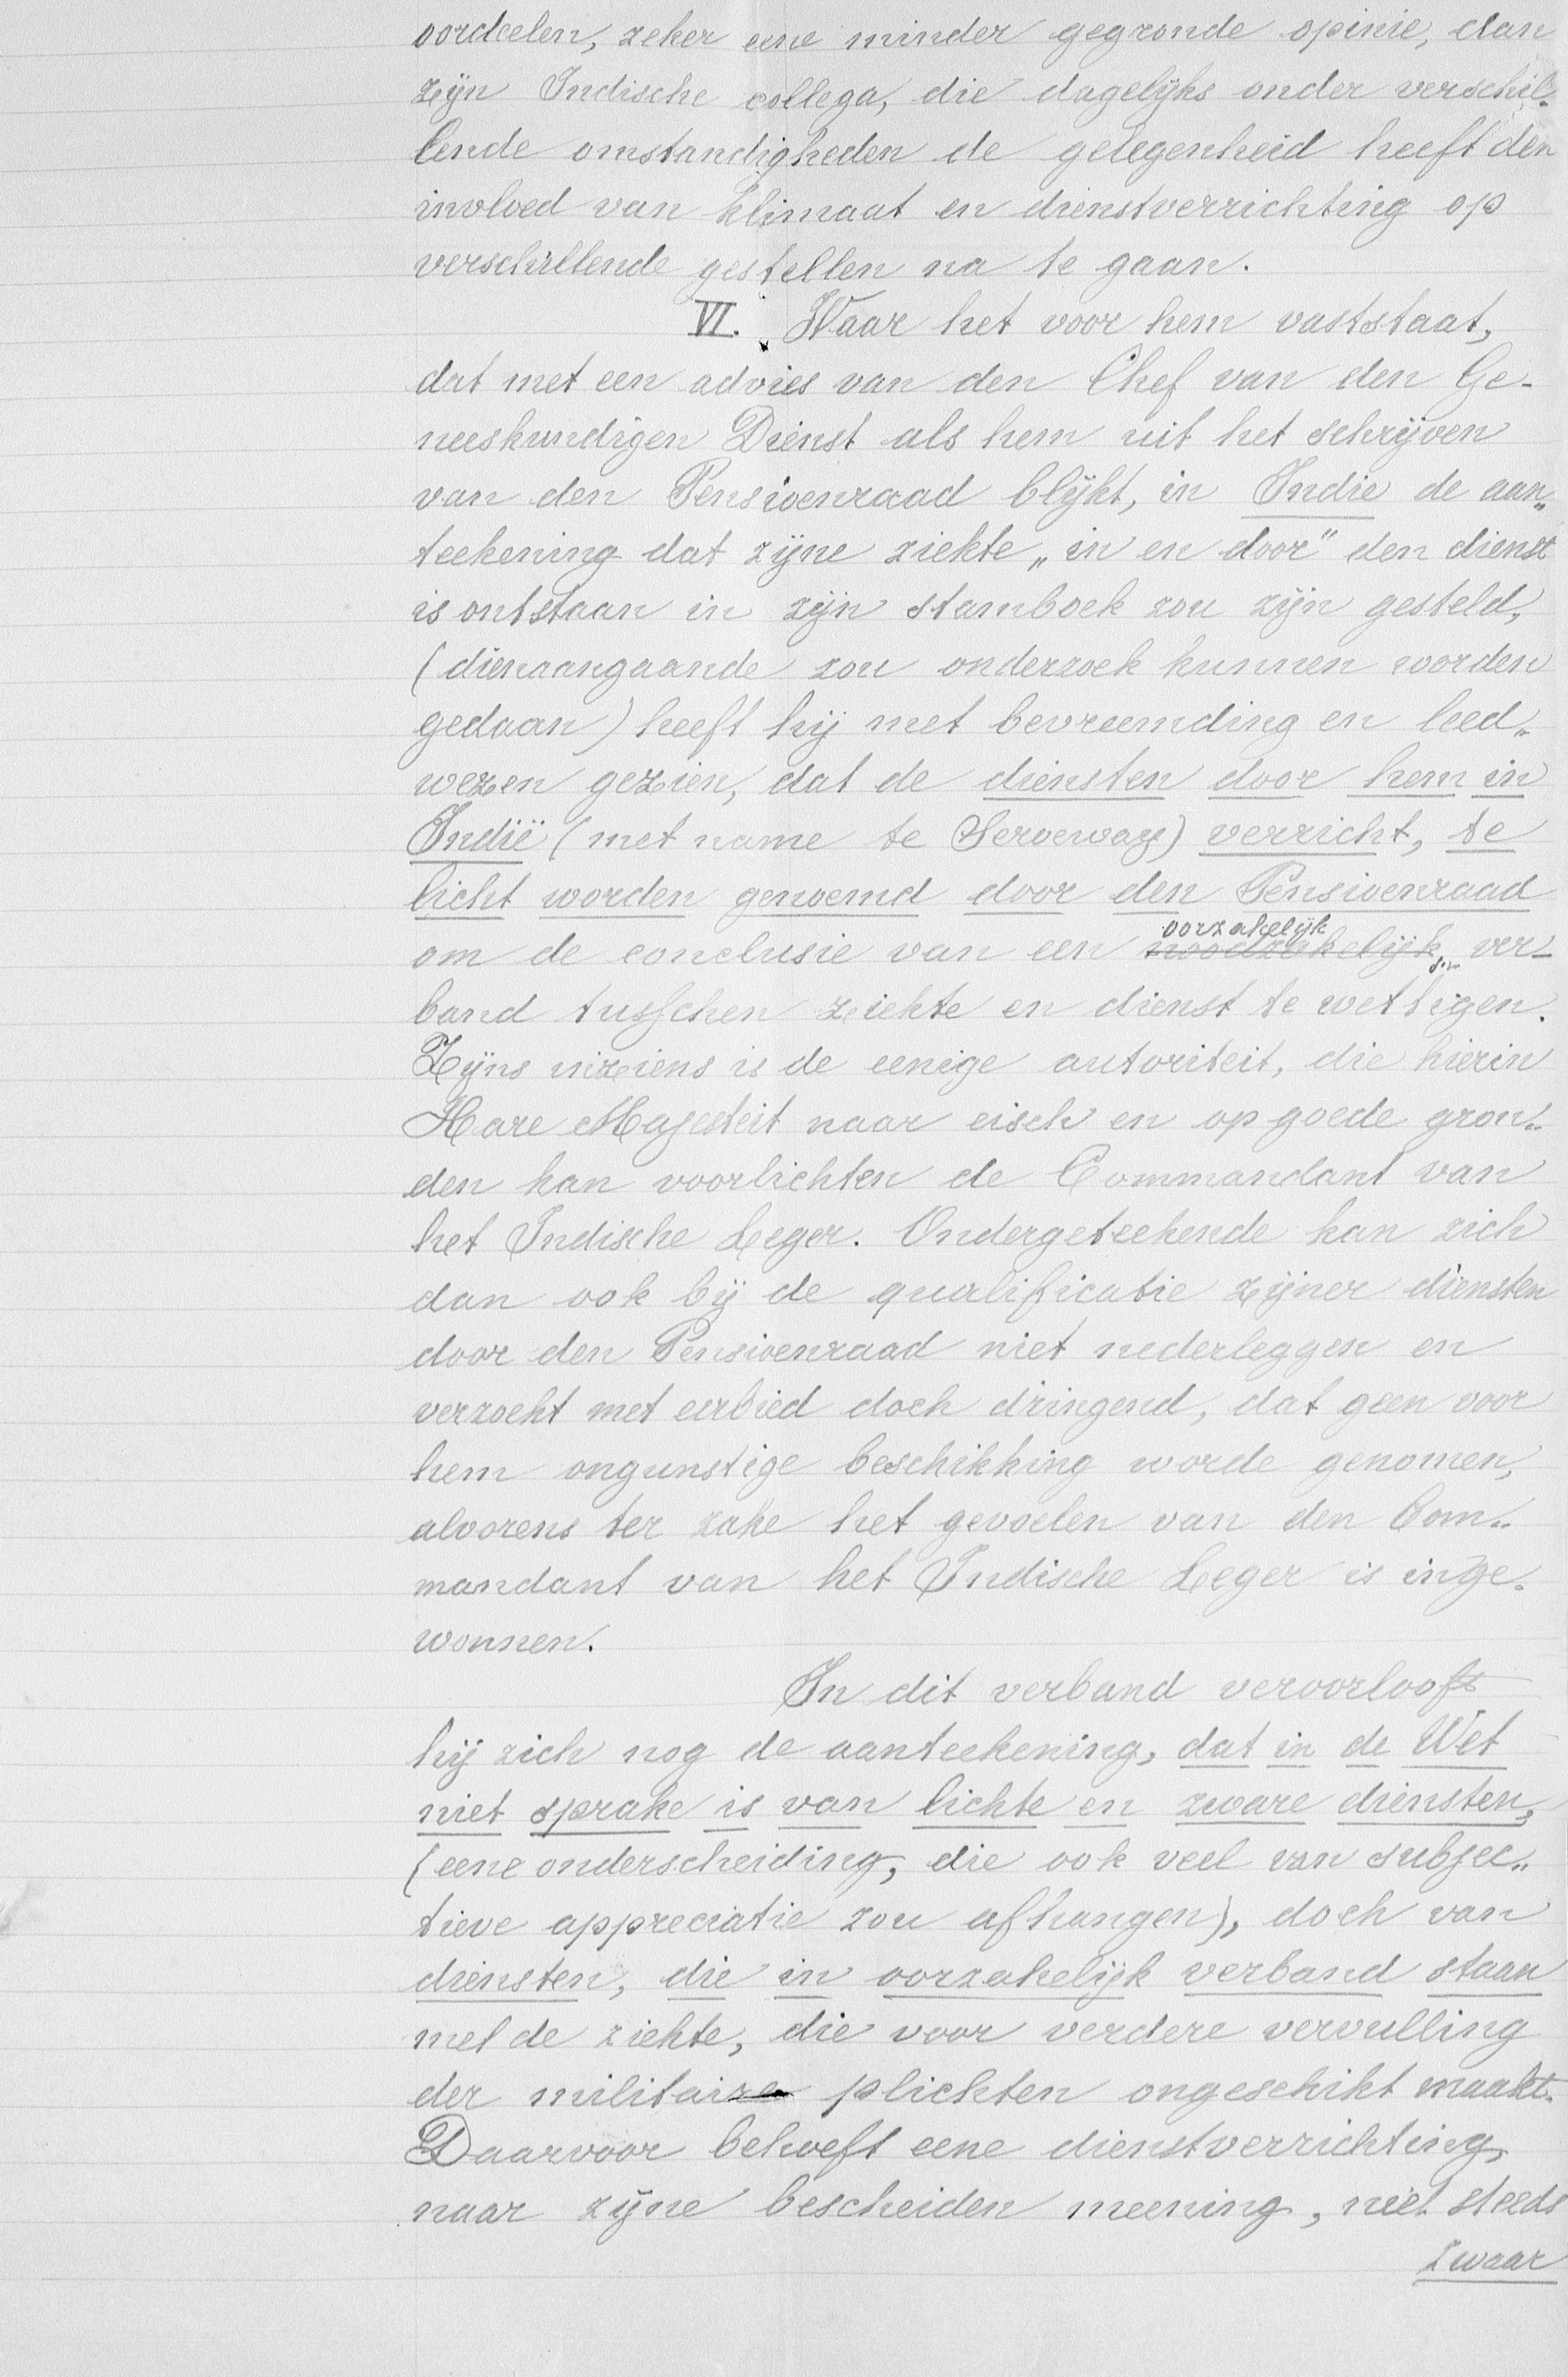 oordeelen, zeker eene minder gegronde opinie, dan
zijn Indische collega, die dagelijks onder verschil-
lende omstandigheden de gelegenheid heeft den
invloed van klimaat en dienstverrichting op
verschillende gestellen na te gaan.
VI. Waar het voor hem vaststaat,
dat met een advies van den Chef van den Ge-
neeskundigen Dienst als hem uit het schrijven
van den Pensioenraad blijkt, in Indie de aan„
teekening dat zijne ziekte „in en door" den dienst
is ontstaan in zijn stamboek zou zijn gesteld,
(dienaangaande zou onderzoek kunnen worden
gedaan) heeft hij met bevreemding en leed„
wezen gezien, dat de diensten door hem in
Indië (met name te Seroeway) verricht, te
licht worden genoemd door den Pensioenraad
oorzakelijk
om de conclusie van een noodzakelijk ver-
band tusschen ziekte en dienst te wettigen.
Zijns inziens is de eenige autoriteit, die hierin
Hare Majesteit naar eisch en op goede gron„
den kan voorlichten de Commandant van
het Indische Leger. Ondergeteekende kan zich
dan ook bij de qualificatie zijner diensten
door den Pensioenraad niet nederleggen en
verzoekt met eerbied doch dringend, dat geen voor
hem ongunstige beschikking worde genomen,
alvorens ter zake het gevoelen van den Com„
mandant van het Indische Leger is inge-
wonnen.
In dit verband veroorlooft
hij zich nog de aanteekening, dat in de Wet
niet sprake is van lichte en zware diensten,
(eene onderscheiding, die ook veel van subjec„
tieve appreciatie zou afhangen), doch van
diensten, die in oorzakelijk verband staan
met de ziekte, die voor verdere vervulling
der militaire plichten ongeschikt maakt.
Daarvoor behoeft eene dienstverrichting,
naar zijne bescheiden meening, niet steeds
zwaar